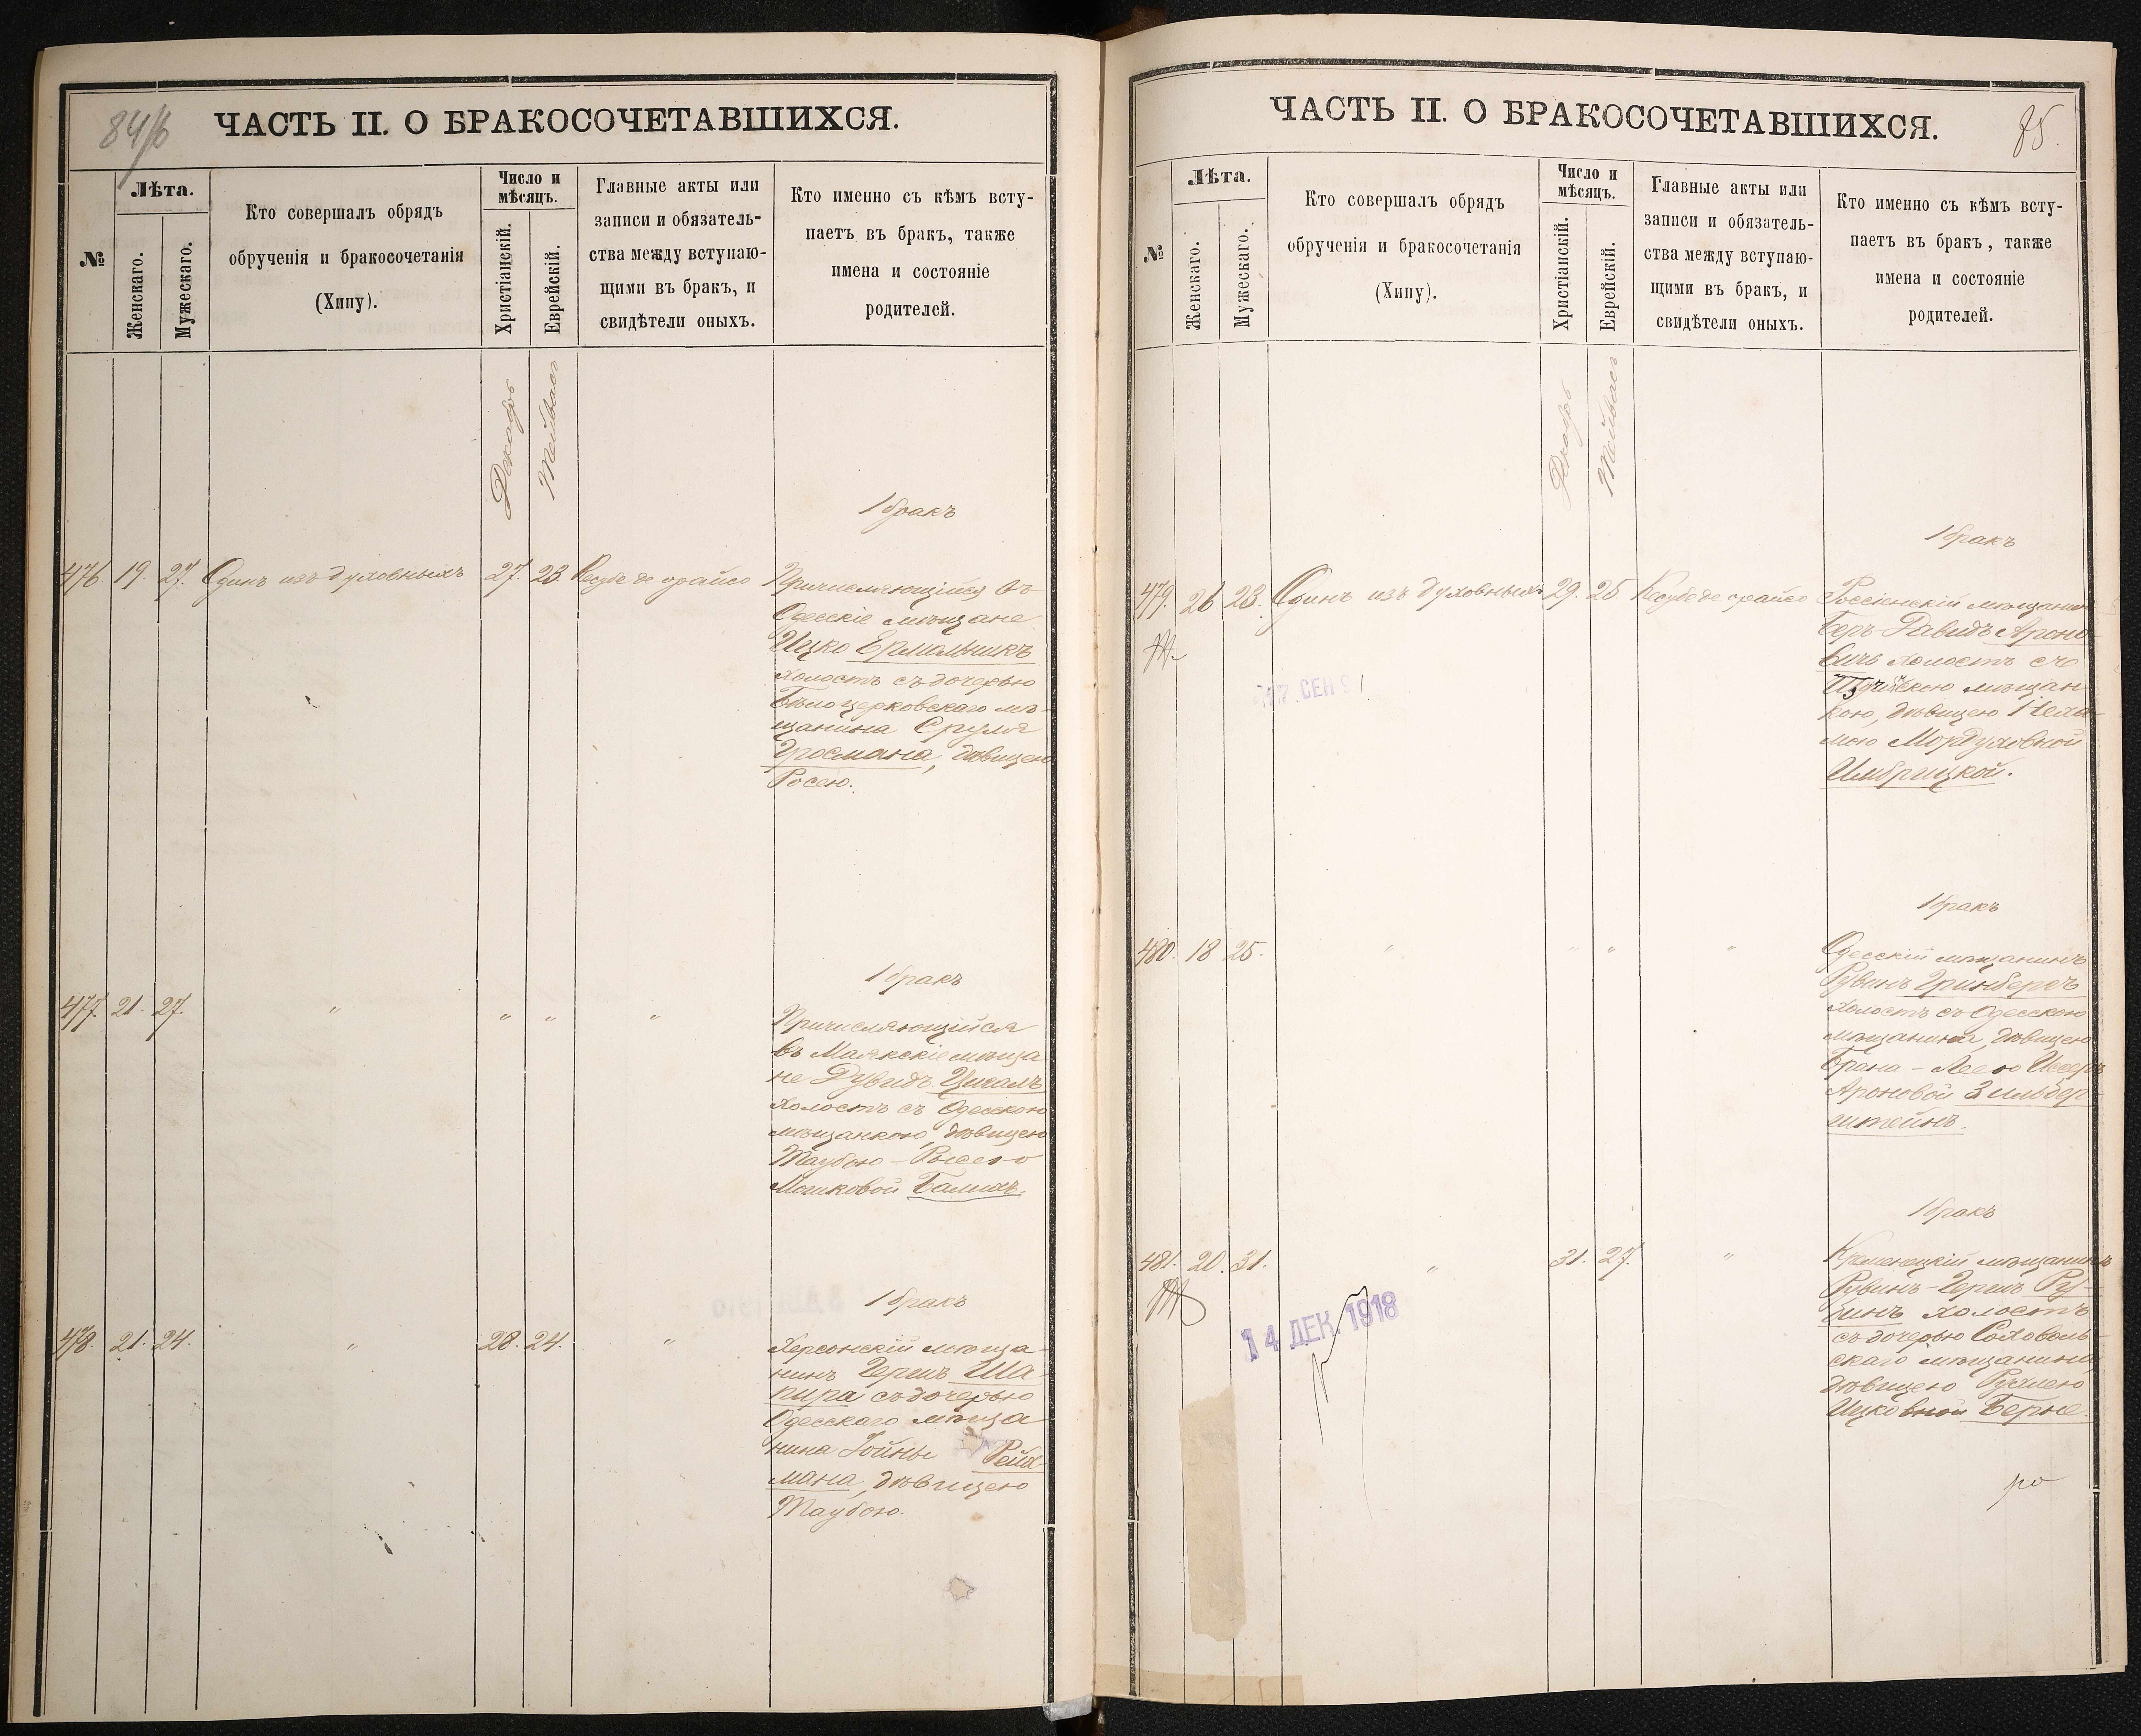 84/б
ЧАСТЬ II. О БРАКОСОЧЕТАВШИХСЯ.
№
Лѣта.
Женскаго.
Мужескаго.
Кто совершалъ обрядъ
обрученія и бракосочетанія
(Хипу).
Число и
мѣсяцъ.
Христіанскій.
Еврейскій.
Главные акты или
записи и обязатель-
ства между вступаю-
щими въ бракъ, и
свидѣтели оныхъ.
Кто именно съ кѣмъ всту-
паетъ въ бракъ, также
имена и состояніе
родителей.
Декабрь
Тейвасъ
1 бракъ
476. 19. 27. Одинъ изъ духовныхъ 27. 23. Кесубе де орайсо
Причисляющійся въ
Одесскіе мѣщане
Ицко Ермольникъ
холостъ съ дочерью
Бѣлоцерковскаго мѣ-
щанина Сруля
Гросмана, дѣвицею
Росею.
1 бракъ
477. 21. 27. " " " "
Причисляющійся
въ Маякскіе мѣща
не Дувидъ Цигалъ
холостъ съ Одесскою
мѣщанкою, дѣвицею
Таубою-Рысею
Мошковой Балихъ.
1 бракъ
478. 21. 24. " 28. 24. "
Херсонскій мѣща-
нинъ Гершъ Ша-
пира съ дочерью
Одесскаго мѣща
нина Іойны Рейх-
мана, дѣвицею
Таубою.
85.
ЧАСТЬ II. О БРАКОСОЧЕТАВШИХСЯ.
№
Лѣта.
Женскаго.
Мужескаго.
Кто совершалъ обрядъ
обрученія и бракосочетанія
(Хипу).
Число и
мѣсяцъ.
Христіанскій.
Еврейскій.
Главные акты или
записи и обязатель-
ства между вступаю-
щими въ бракъ, и
свидѣтели оныхъ.
Кто именно съ кѣмъ всту-
паетъ въ бракъ, также
имена и состояніе
родителей.
Декабрь
Тейвасъ
1 бракъ
479. 26. 23. Одинъ изъ духовныхъ 29. 25. Кесубе де орайсо
Россіенскій мѣщанинъ
Беръ-Давидъ Ароно-
вичъ холостъ съ
мѣщан-
кою, дѣвицею Неха-
мою Мордуховной
Имбрицкой.
17. СЕН
1 бракъ
480. 18 25. " " " "
Одесскій мѣщанинъ
Рувинъ Гринбергъ
холостъ съ Одесскою
дѣвицею
Брана-Леею
Ароновой Зильбер-
штейнъ.
1 бракъ
481. 20. 31. " 31. 27. "
Кременецкій мѣщанинъ
Рувинъ-Гершъ Ру-
бинъ холостъ
съ дочерью
скаго мѣщанина
дѣвицею Рухлею
Ицковной Берне.
14 ДЕК. 1918